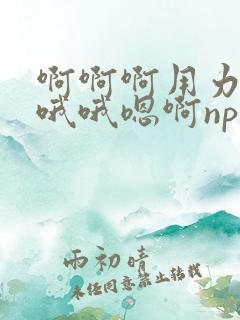 啊啊啊用力
哦哦嗯啊np
雨初晴
未经同意禁止转载